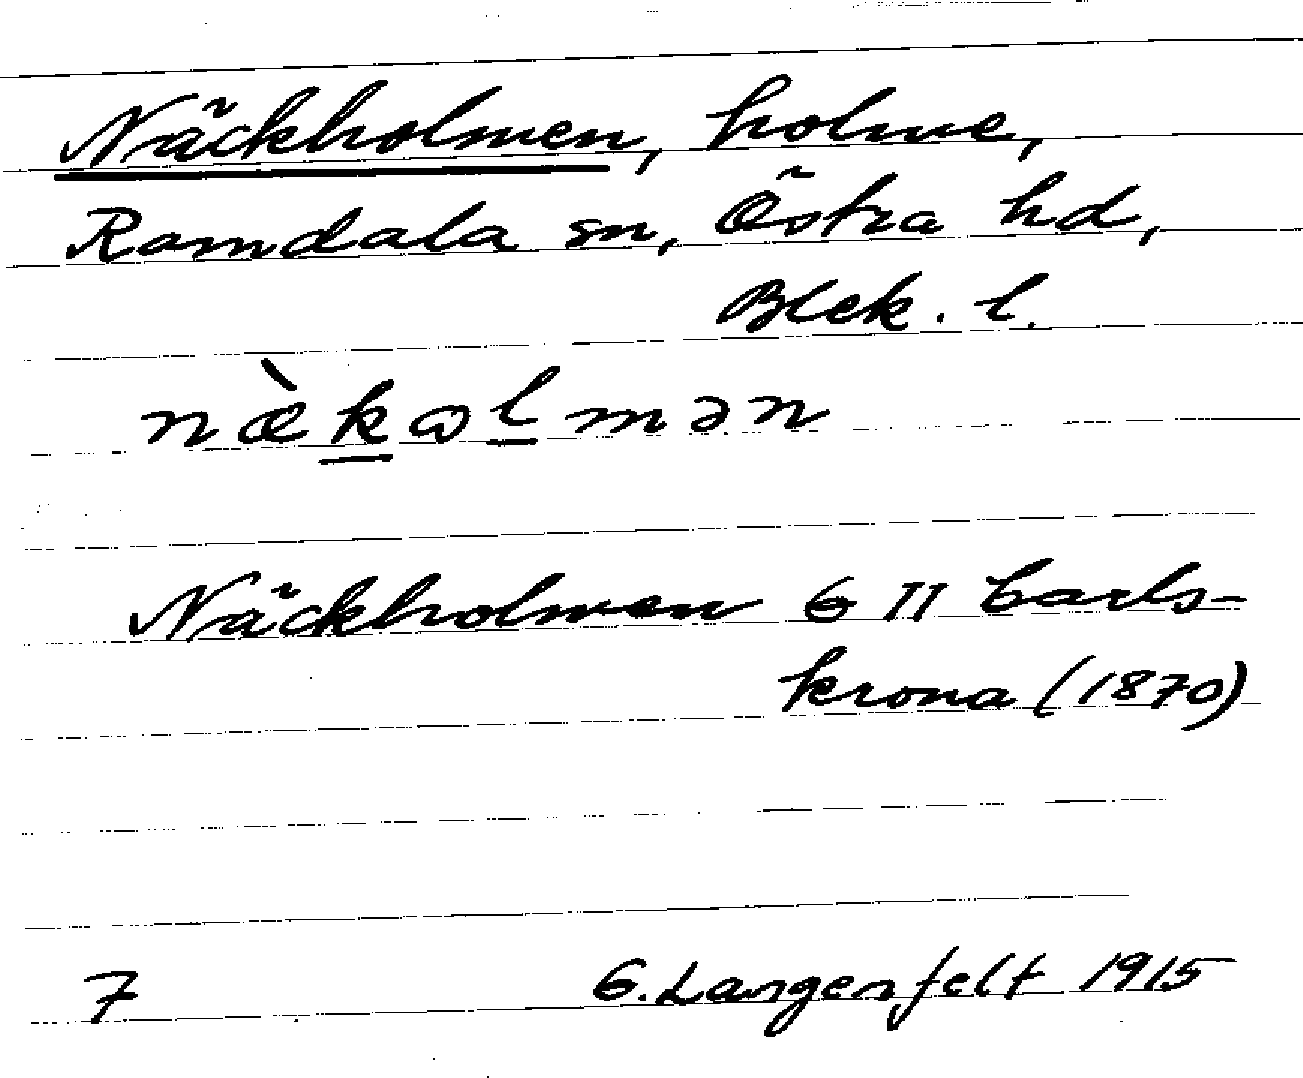 Näckholmen, holme,
Ramdala sn, Östra hd,
Blek. l.
næ̀kɷlmən
Näckholmen G II Carls-
krona (1870)
7 G. Langenfelt 1915